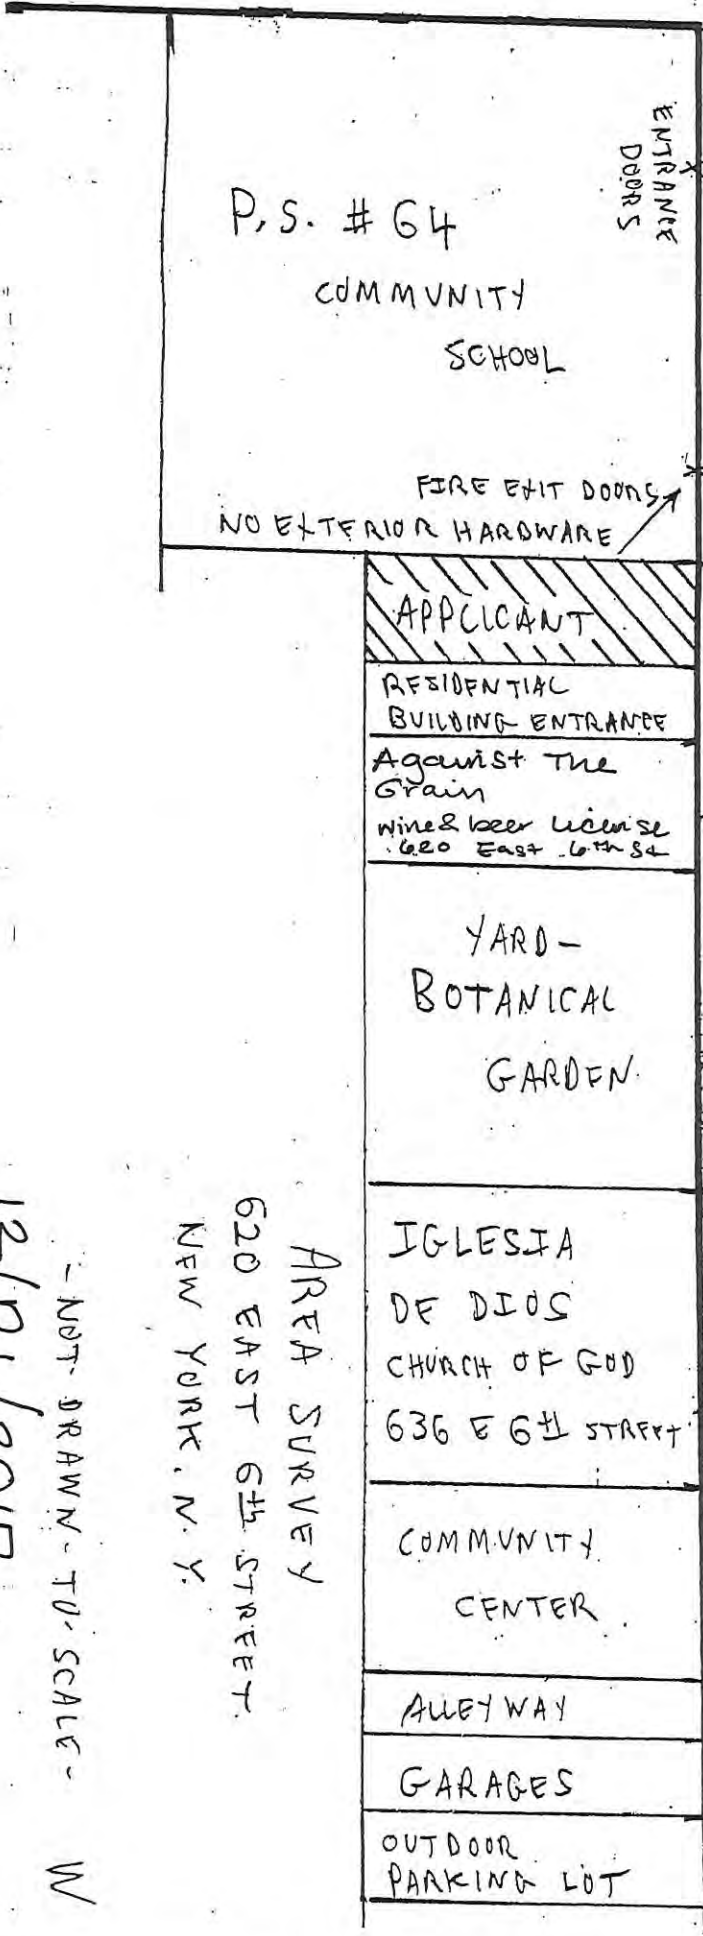 ENTRANCE
DOORS
P.S. # 64
COMMUNITY
SCHOOL
FIRE EXIT DOORS
NO EXTERIOR HARDWARE
APPLICANT
RESIDENTIAL
BUILDING ENTRANCE
Against The
Grain
wine & beer license
620 East 6th St
YARD -
BOTANICAL
GARDEN
IGLESIA
DE DIOS
CHURCH OF GOD
636 E 6th STREET
COMMUNITY
CENTER
ALLEYWAY
GARAGES
OUTDOOR
PARKING LOT
AREA SURVEY
620 EAST 6th STREET
NEW YORK, N.Y.
- NOT DRAWN - TO SCALE -
W